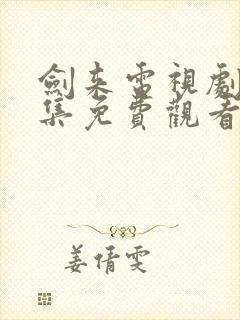 劍来雷視劇
集免費觀看
姜倩雯